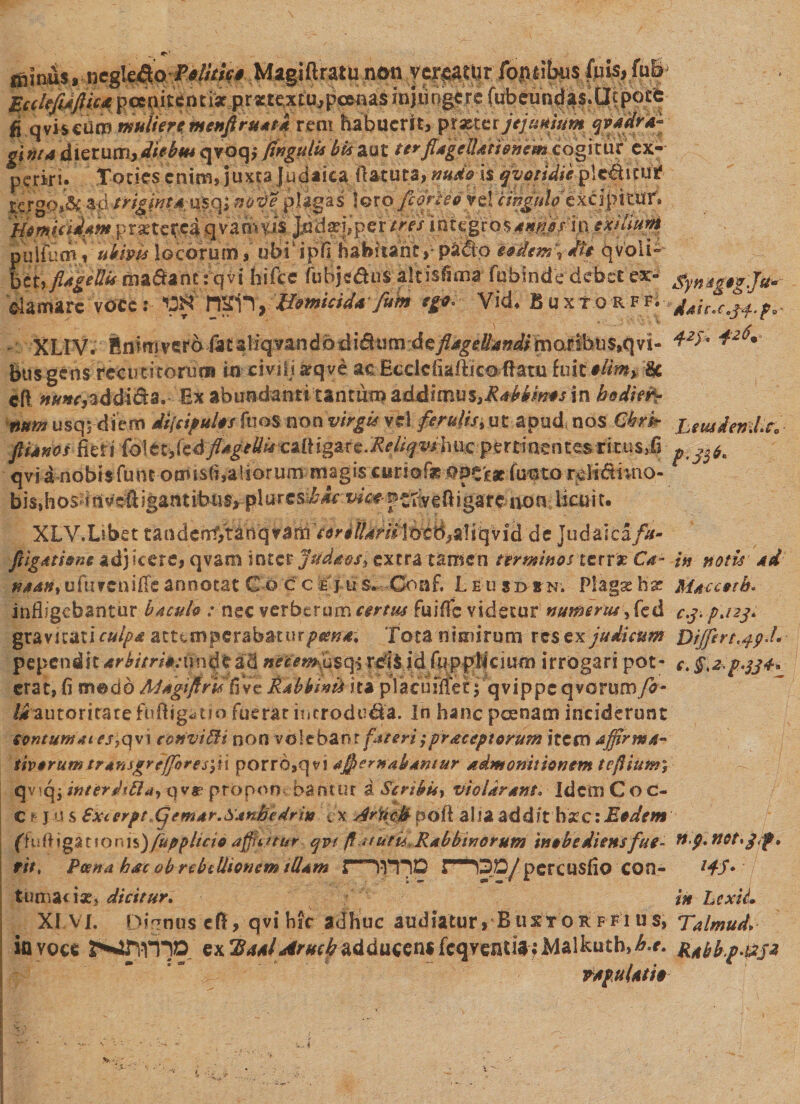 minùs, neglecto Politico Magistratu non vereatur sontibus suis, sub
Ecclesiastica pœnitentiæ prætextu, pœnas injungere subeundas. Utpote
si qvis cum muliere menstruatâ rem habuerit, præter jejunium qvadra-
ginta dierum, diebus qvoq; singulis bis aut ter flagellationem cogitur ex-
periri. Toties enim, juxta Judaica statuta, nudo is qvotidie plectitur
tergo, & ad triginta usq; novè plagas loro scorteo vel cingulo excipitur.
Homicidam præterea qvamvis Judæi, per tres integros annos in exilium
pulsum, ubivis locorum, ubi ipsi habitant, pacto eodem, die qvoli-
bet, flagellis mactant: qvi hisce subjectus altissima subinde debet ex-
clamare voce: אני רוצח, Homicida sum ego. Vid. BUXTORFF.
Synagog. Ju-
daic. c. 34. p.
425. 426.
XLIV. Enimverò sat aliqvandò dictum de flagellandi moribus, qvi-
bus gens recutitorum in civili æqvè ac Ecclesiastico statu fuit olim, &
est nunc, addicta. Ex abundanti tantùm addimus, Rabbinos in hodier-
num usq; diem discipulos suos non virgis vel ferulis, ut apud nos Chri-
stianos fieri solet, sed flagellis castigare. Reliqvi huc pertinentes ritus, si
qvi à nobis sunt omissi, aliorum magis curiosæ operæ suoto relictimo-
bis, hos investigantibus, plures hâc vice pervestigare non licuit.
Leusden. l. c.
p. 336.
XLV. Libet tandem, tanqvam corollarii locô, aliqvid de Judaicâ fu-
stigatione adjicere, qvam inter Judæos, extra tamen terminos terræ Ca-
naan, usu venisse annotat COCCEJUS. Conf. LEUSDEN. Plagæ hæ
infligebantur baculo: nec verberum certus fuisse videtur numerus, sed
gravitati culpæ attemperabatur pœna. Tota nimirum res ex judicum
pependit arbitrio: unde ad necem usq; reis id supplicium irrogari pot-
erat, si modò Magistris sive Rabbinis ita placuisset; qvippe qvorum so-
lâ autoritate fustigatio fuerat introducta. In hanc pœnam inciderunt
contumaces, qvi convicti non volebant fateri; præceptorum item affirma-
tivorum transgressores; ii porrò, qvi aspernabantur admonitionem testium;
qviq; interdicta, qvæ propoñebantur à Scribis, violârant. Idem COC-
CEJUS Excerpt. Gemar. Sanhedrin ex Aruch post alia addit hæc: Eodem
(fustigationis) supplicio afficitur qvi statutis Rabbinorum inobediens fue-
rit. Pœna hæc ob rebellionem illam מרדות מכת / percussio con-
tumaciæ, dicitur.
in notis ad
Maccoth.
c. 3. p. 123.
Dissert. 49. l.
c. §. 2. p. 334.
n. 9. not. 3. p.
145.
XLVI. Dignus est, qvi hîc adhuc audiatur, BUXTORFFIUS,
in voce מרדות ex Baal Aruch adducens seqventia: Malkuth, h. e.
in Lexic.
Talmud.
Rabb. p. 1252
vapulatio